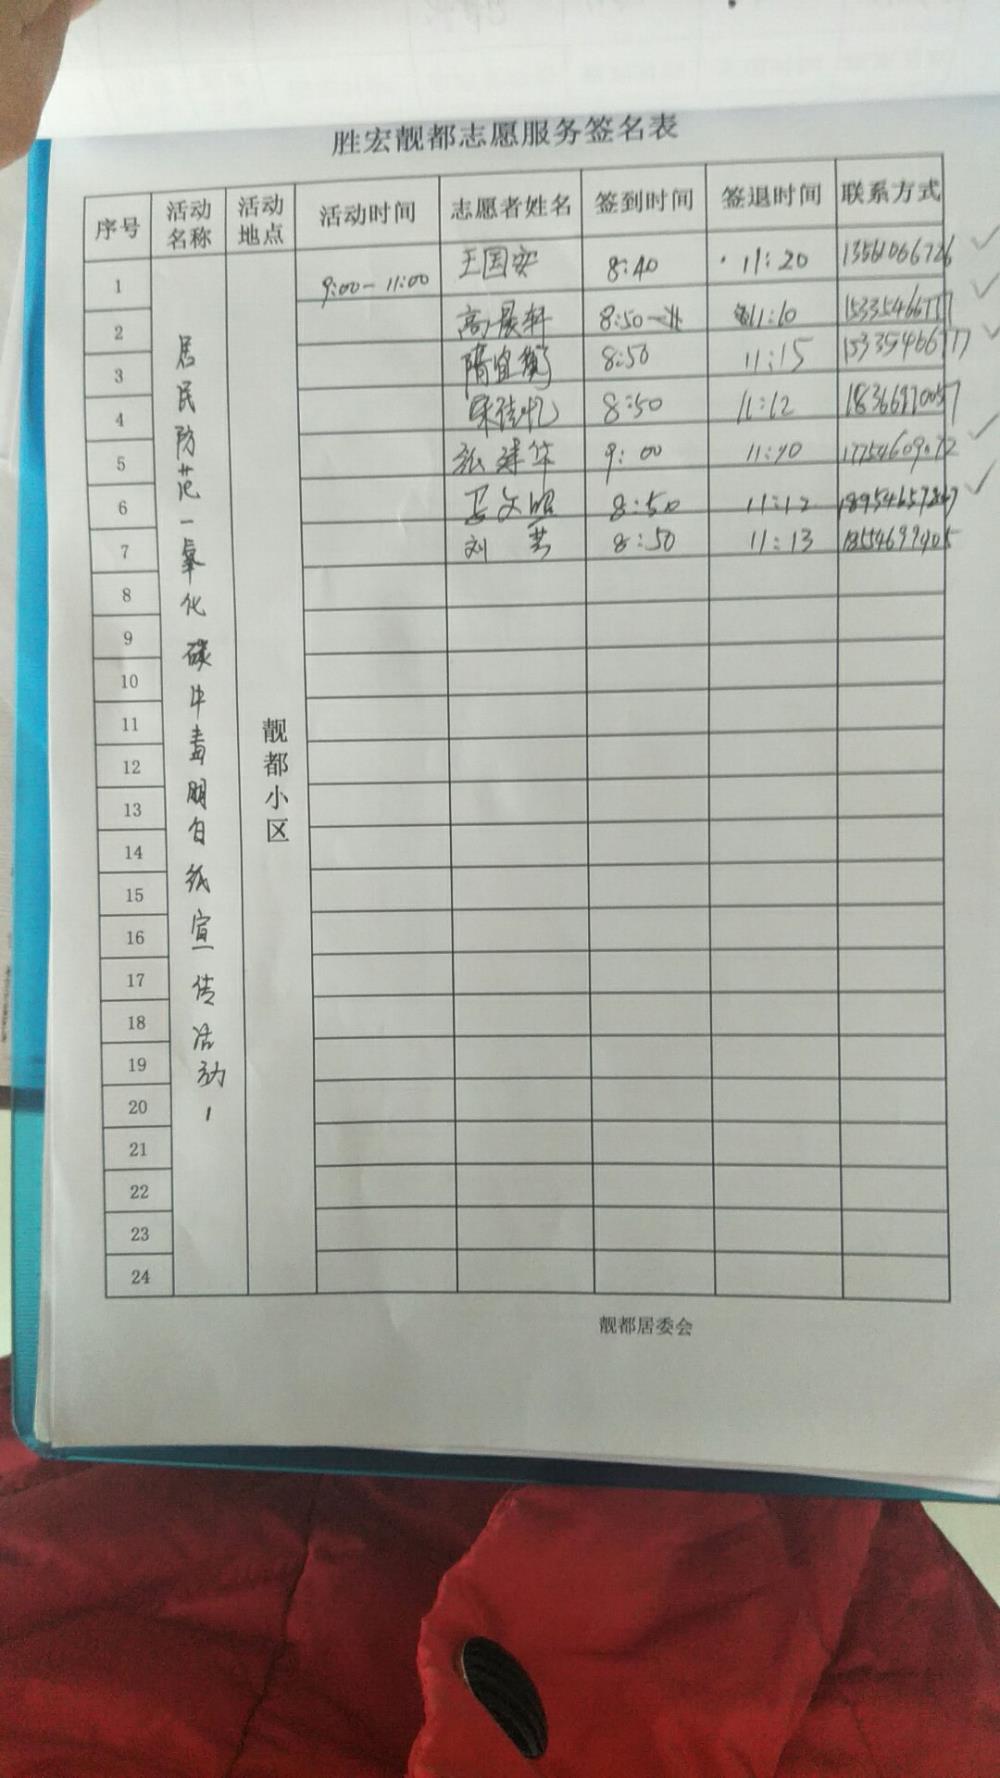 胜宏靓都志愿服务签名表
序号 活动名称 活动地点 活动时间 志愿者姓名 签到时间 签退时间 联系方式
居民防范一氧化碳中毒明白纸宣传活动
靓都小区
1 9:00-11:00 王国安 8:40 11:20
2 高晨轩 8:50 11:10
3 隋宜衡 8:50 11:15
4 宋佳忆 8:50 11:12
5 张建华 9:00 11:40
6 文明 8:50 11:12
7 刘芸 8:50 11:13
8
9
10
11
12
13
14
15
16
17
18
19
20
21
22
23
24
靓都居委会